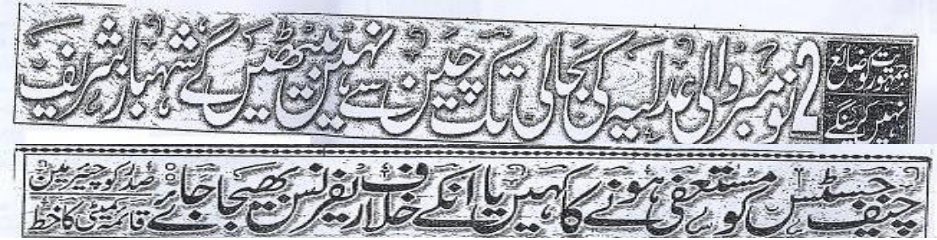 جمہوریت کو ضائع
نہیں کرینگے
2 نومبر والی عدلیہ کی بحالی تک چین سے نہیں بیٹھیں گے شہباز شریف
چیف جسٹس کو مستعفی ہونے کا کہیں یا انکے خلاف ریفرنس بھیجا جائے
صدر کو چیئرمین
قائمہ کمیٹی کا خط